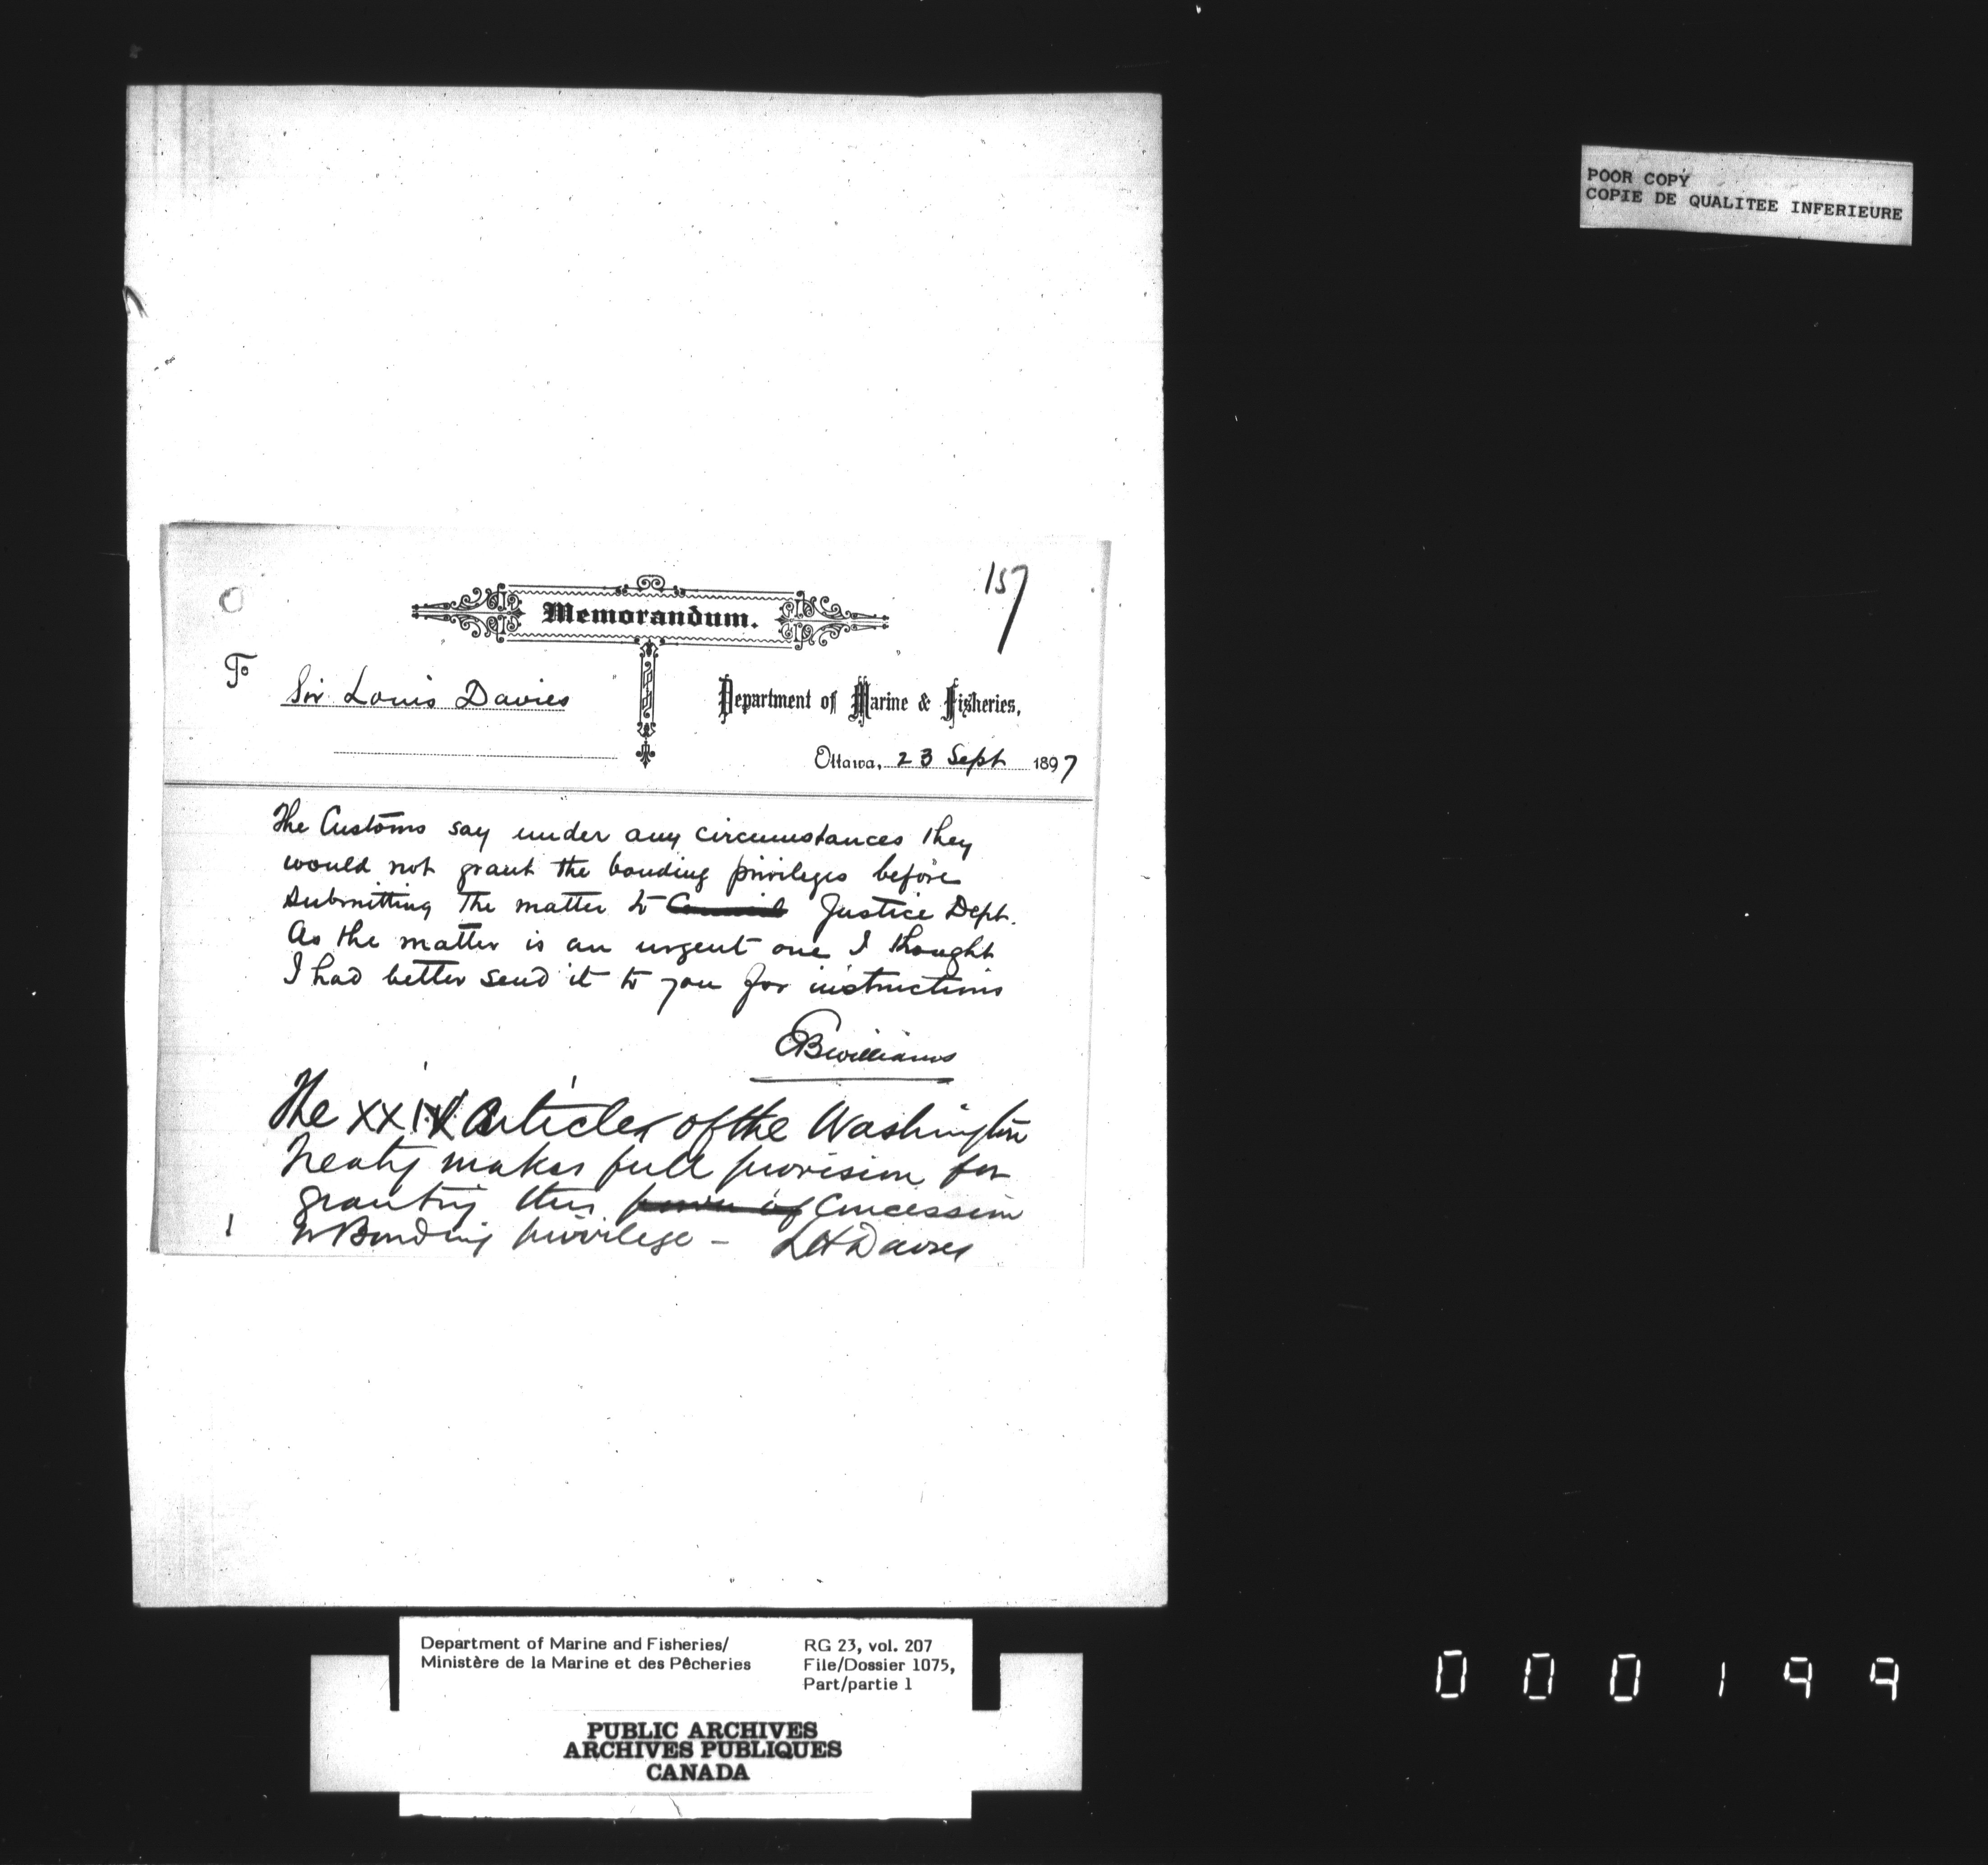 POOR COPY
COPIE DE QUALITEE INFERIEURE
157
Memorandum.
To
Sir Louis Davies
Department of Marine & Fisheries,
Ottawa, 23 Sept 1897
The Customs say under any circumstances they
would not grant the bonding privileges before
submitting the matter to Council Justice Dept.
As the matter is an urgent one I thought
I had better send it to you for instructions
EBWilliams
The XXIX Article of the Washington
Treaty makes full provision for
granting this power of Concession
or Bonding privilege - LHDavies
Department of Marine and Fisheries/
Ministère de la Marine et des Pêcheries
RG 23, vol. 207
File/Dossier 1075,
Part/partie 1
PUBLIC ARCHIVES
ARCHIVES PUBLIQUES
CANADA
000199